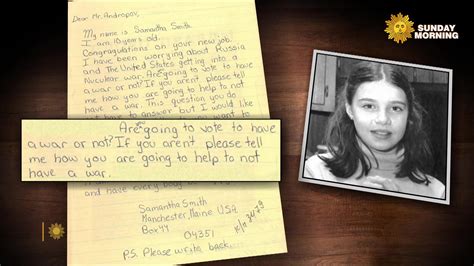 SUNDAY
MORNING
Dear Mr. Andropov,
My name is Samantha Smith
I am 10 years old.
on your new job.
I have been worrying about Russia
and The United States getting into a
Nuculear war. Are going to vote to have
a war or not? If you aren't please tell
me how you are going to help to not
have a war. This question you do
not have to answer but I would like
want to
Are going to vote to have
a war or not? If you aren't please tell
me how you are going to help to not
have a war.
and have every
Samantha Smith
Manchester, Maine USA
Box 44
04351
P.S. Please write back